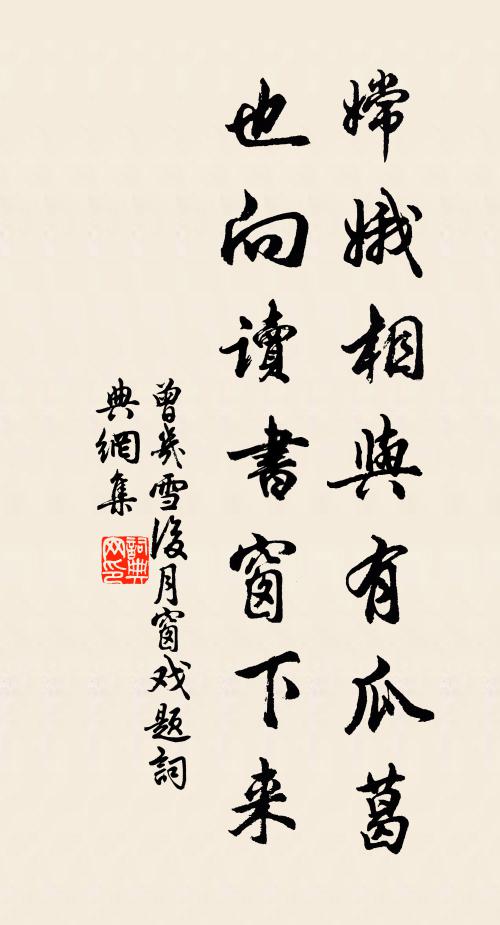 嫦娥相與有瓜葛
也向读書窗下来
曾幾雪後月窗戏题詞
典網集
詞典
网印